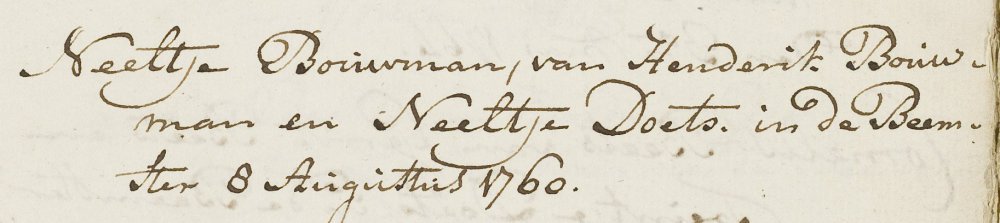 Neeltje Bouwman, van Henderik Bouw-
man en Neeltje Doets. in de Beem-
ster 8 Augustus 1760.